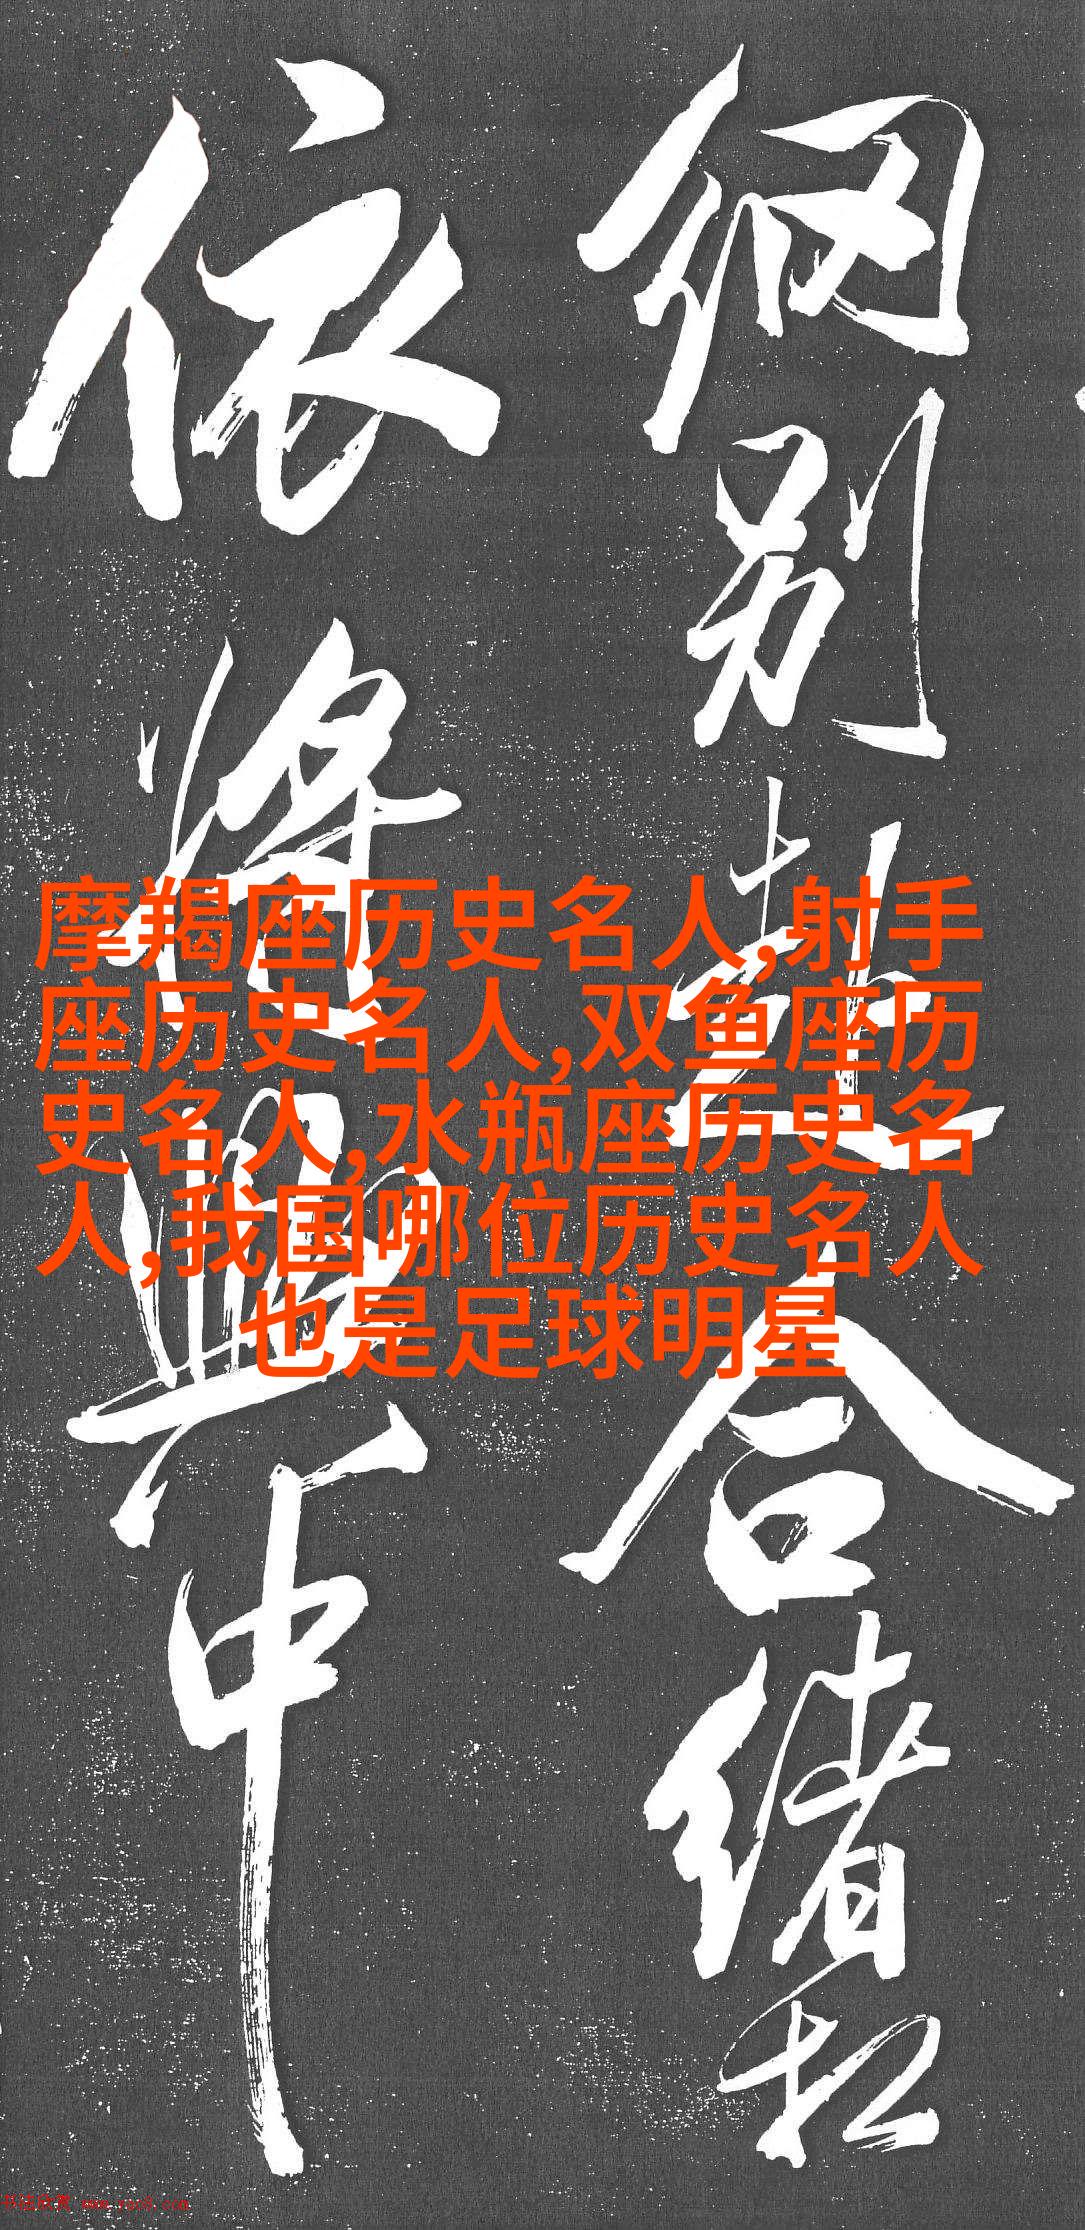 細别
合緒
依將興中
摩羯座历史名人,射手
座历史名人,双鱼座历
史名人,水瓶座历史名
人,我国哪位历史名人
也是足球明星
书法欣赏 www.yac8.com